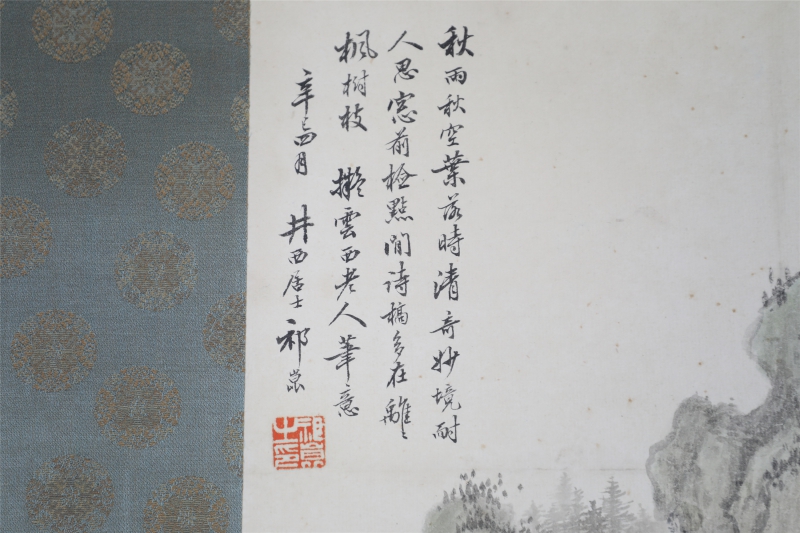 秋雨秋空葉落時清奇妙境耐
人思窓前檢點閒詩稿多在離〻
楓樹枝 擬雲西老人筆意
辛巳四月 井西居士祁崑